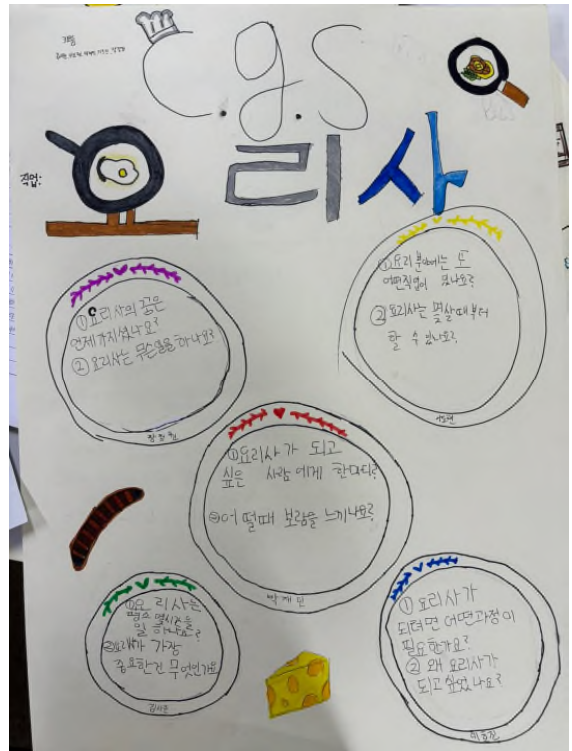 C.g.S
직업:
요리사
①요리사의 꿈은
언제가지셨나요?
②요리사는 무슨일을 하나요?
①요리 분야에는 또
어떤직업이 있나요?
②요리사는 몇살때부터
할 수 있나요?
①요리사가 되고
싶은 사람에게 한마디?
②어떨때 보람을 느끼나요?
박재민
①요리사는
평소 몇시간을
일 하나요?
가장
중요한건 무엇인가요
①요리사가
되려면 어떤과정이
필요한가요?
②왜 요리사가
되고싶었나요?